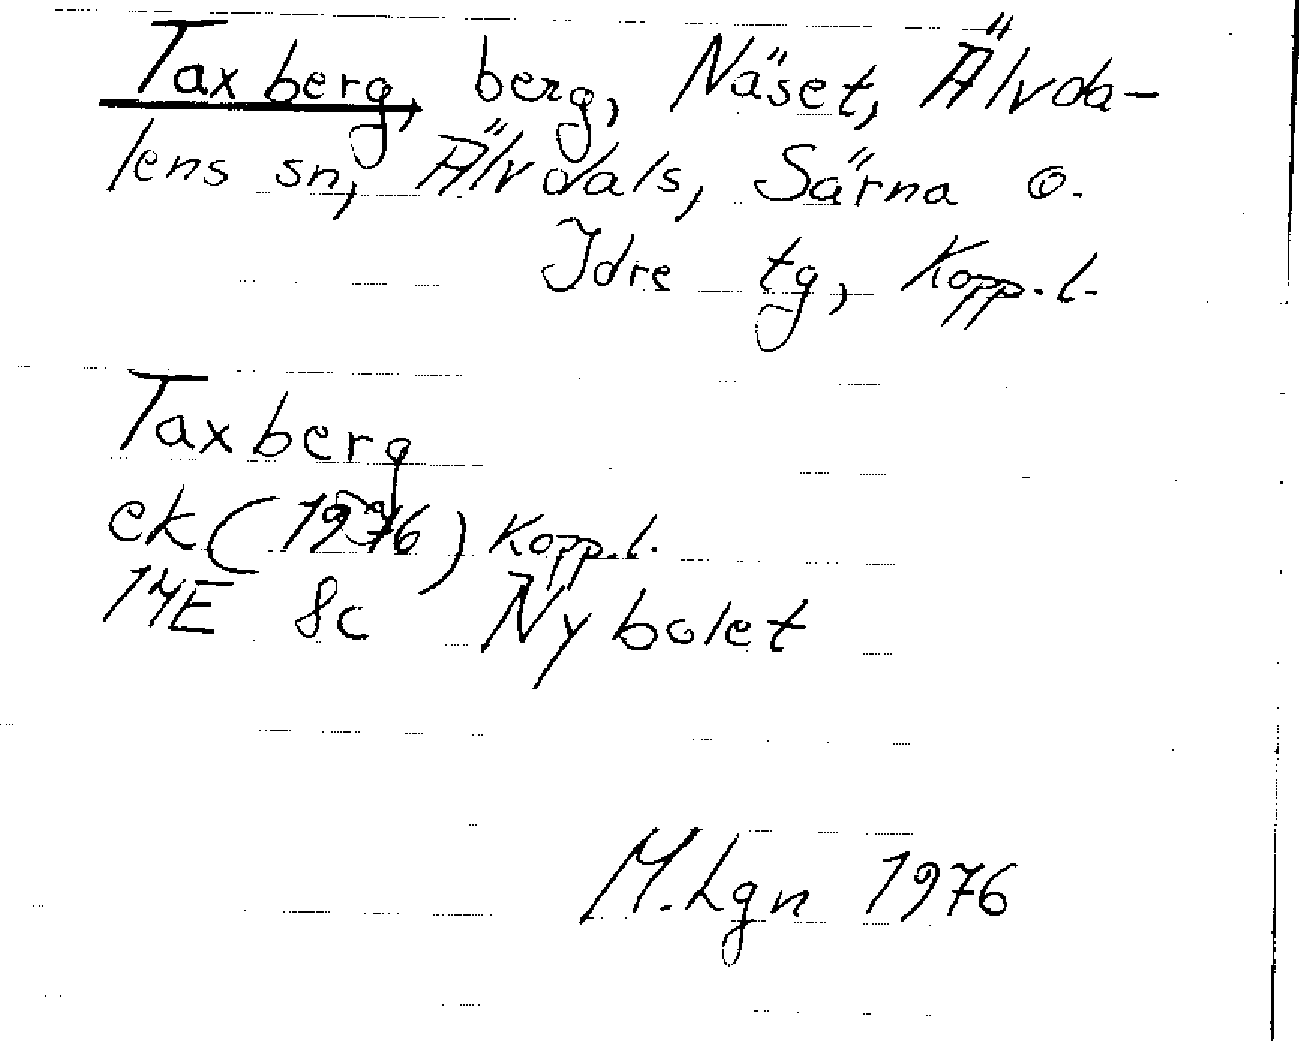 Taxberg, berg, Näset, Älvda-
lens sn, Älvdals, Särna o.
Idre tg, Kopp. l.
Taxberg
ek (1976) Kopp. l.
14E 8c Nybolet
M. Lgn 1976